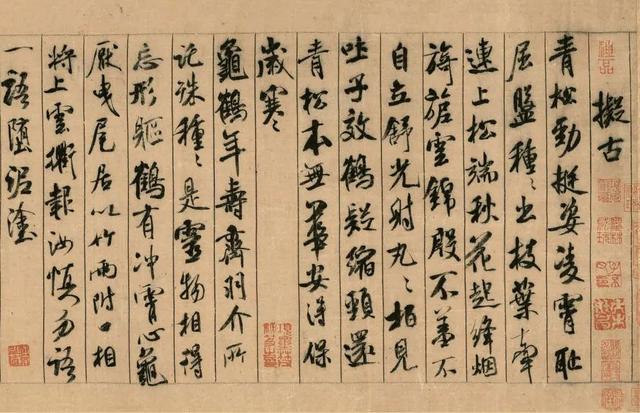 擬古
青松勁挺姿凌霄恥
屈盤種〻出枝葉牽
連上松端秋花起絳烟
旖旎雲錦殷不羞不
自立舒光射丸〻柏見
吐子效鶴疑縮頸還
青松本無華安得保
歲寒〻
龜鶴年壽齊羽介所
託殊種〻是靈物相得
忘形軀鶴有沖霄心龜
厭曳尾居以竹兩附口相
將上雲衢報汝慎勿語
一語墮泥塗